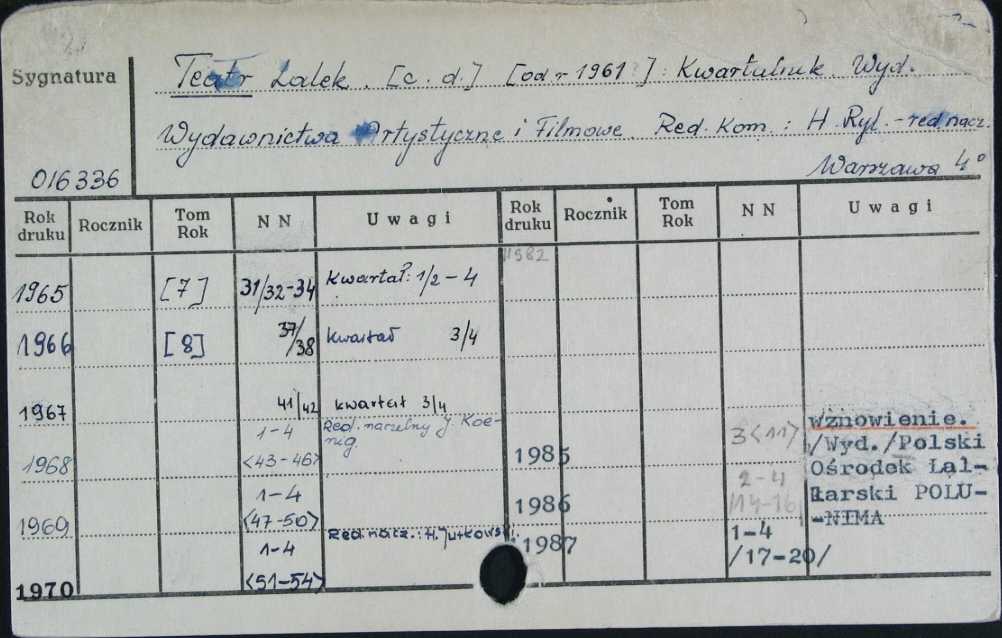 Sygnatura
Teatr Lalek. [c. d.] [od r 1961 ] Kwartalnik. Wyd.
Wydawnictwa Artystyczne i Filmowe. Red. Kom. : H. Ryl. - red. nacz.
016336 Warszawa 4°
Rok druku Rocznik Tom Rok NN Uwagi Rok druku Rocznik Tom Rok NN Uwagi
1982
1965 [7] 31/32-34 Kwartał: 1/2 - 4
1966 [8] 37/38 Kwartał 3/4
1967 41/42 kwartał 3/4
1968 1-4 <43-46> Red. naczelny J. Koenig
1969 1-4 <47-50>
1970 1-4 <51-54> Red. nacz.: H. Jurkowski
1985 3<11> Wznowienie.
/Wyd./Polski
Ośrodek Lal-
karski POLU-
-NIMA
1986 2-4 /14-16
1987 1-4 /17-20/